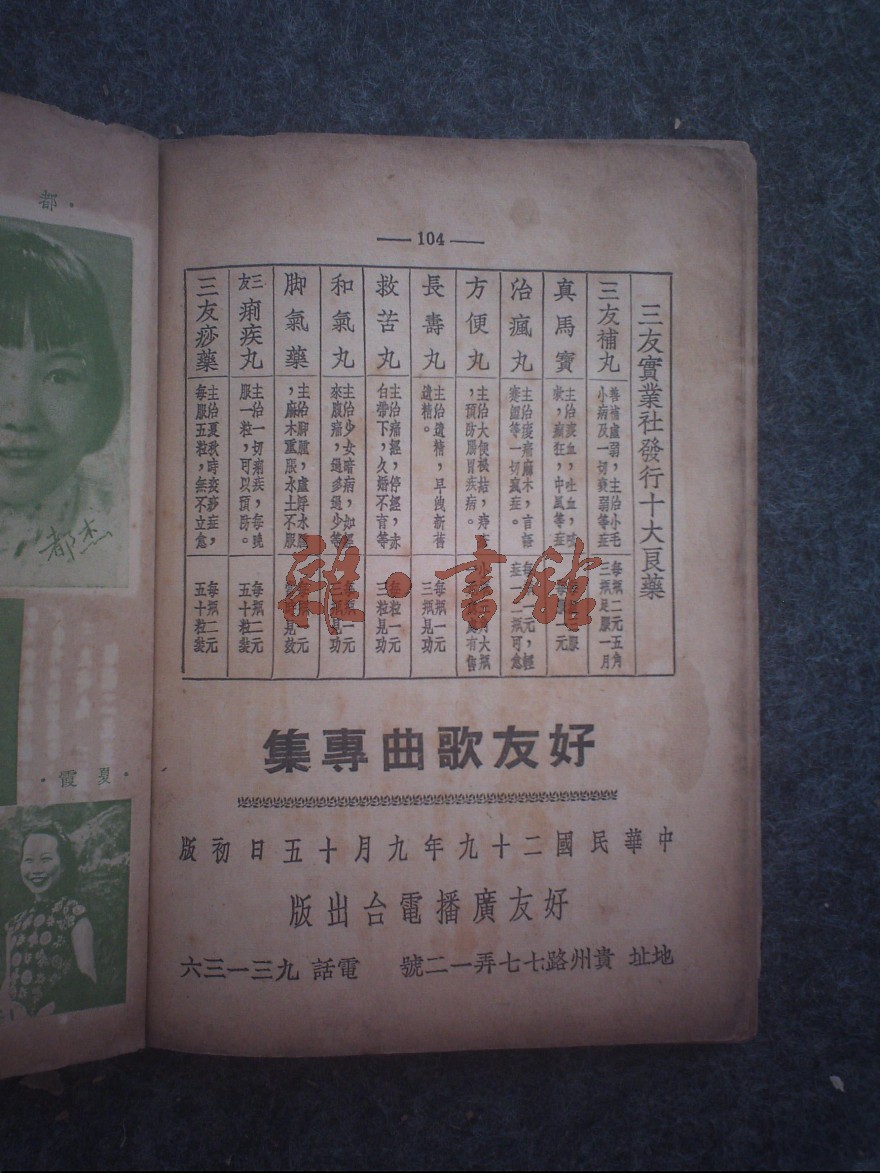 都·
都杰
·夏霞·
— 104 —
三友實業社發行十大良藥
三友補丸
善補虛弱，主治小毛
小病及一切衰弱等症
每瓶二元五角
三瓶足服一月
真馬寶
主治痰血，吐血，咳
嗽，癲狂，中風等症
一元
治瘋丸
主治痠痛麻木，言語
蹇澀等一切瘋症。
每瓶一元，輕
症一瓶可愈
方便丸
主治大便秘結，痔瘡
，預防腸胃疾病。
大瓶
有售
長壽丸
主治遺精，早洩新舊
遺精。
每瓶一元
三瓶見功
救苦丸
主治痛經，停經，赤
白帶下，久婚不育等
每粒一元
三粒見功
和氣丸
主治少女暗病，如經
來腹痛，過多過少等
每瓶一元
三瓶見功
脚氣藥
主治脚腫，虛浮水腫
，麻木重服水土不服
每瓶一元
見效
三友痢疾丸
主治一切痢疾，每晚
服一粒，可以預防。
每瓶二元
五十粒裝
三友痧藥
主治夏秋時疫痧症，
每服五粒，無不立愈
每瓶二元
五十粒裝
雜·書館
好友歌曲專集
中華民國二十九年九月十五日初版
好友廣播電台出版
地址 貴州路七七弄一二號 電話 九三一三六